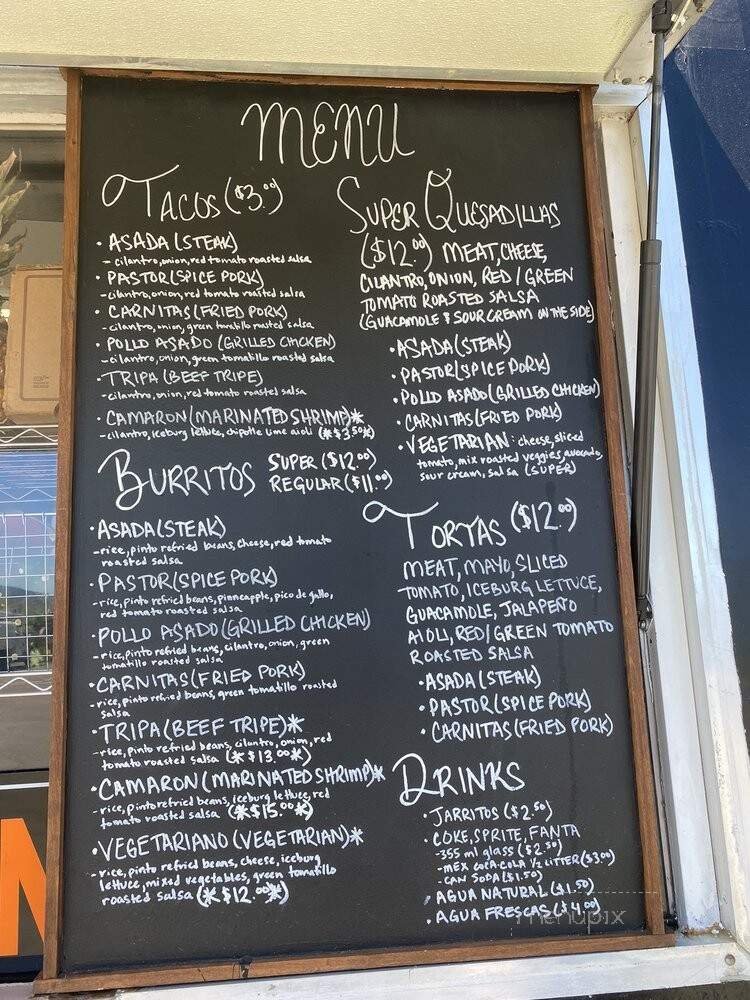 MENU
TACOS ($3.00)
• ASADA (STEAK)
- cilantro, onion, red tomato roasted salsa
• PASTOR (SPICE PORK)
- cilantro, onion, red tomato roasted salsa
• CARNITAS (FRIED PORK)
- cilantro, onion, green tomatillo roasted salsa
• POLLO ASADO (GRILLED CHICKEN)
- cilantro, onion, green tomatillo roasted salsa
• TRIPA (BEEF TRIPE)
- cilantro, onion, red tomato roasted salsa
• CAMARON (MARINATED SHRIMP)*
- cilantro, iceburg lettuce, chipotle lime aioli (*$3.50*)
BURRITOS SUPER ($12.00)
REGULAR ($11.00)
• ASADA (STEAK)
- rice, pinto refried beans, cheese, red tomato
roasted salsa
• PASTOR (SPICE PORK)
- rice, pinto refried beans, pinneapple, pico de gallo,
red tomato roasted salsa
• POLLO ASADO (GRILLED CHICKEN)
- rice, pinto refried beans, cilantro, onion, green
tomatillo roasted salsa
• CARNITAS (FRIED PORK)
- rice, pinto refried beans, green tomatillo roasted
salsa
• TRIPA (BEEF TRIPE)*
- rice, pinto refried beans, cilantro, onion, red
tomato roasted salsa (*$13.00*)
• CAMARON (MARINATED SHRIMP)*
- rice, pinto refried beans, iceburg lettuce, red
tomato roasted salsa (*$15.00*)
• VEGETARIANO (VEGETARIAN)*
- rice, pinto refried beans, cheese, iceburg
lettuce, mixed vegetables, green tomatillo
roasted salsa (*$12.00*)
SUPER QUESADILLAS
($12.00) MEAT, CHEESE,
CILANTRO, ONION, RED / GREEN
TOMATO ROASTED SALSA
(GUACAMOLE & SOUR CREAM ON THE SIDE)
• ASADA (STEAK)
• PASTOR (SPICE PORK)
• POLLO ASADO (GRILLED CHICKEN)
• CARNITAS (FRIED PORK)
• VEGETARIAN: cheese, sliced
tomato, mix roasted veggies, avocado,
sour cream, salsa (SUPER)
TORTAS ($12.00)
MEAT, MAYO, SLICED
TOMATO, ICEBURG LETTUCE,
GUACAMOLE, JALAPEÑO
AIOLI, RED/GREEN TOMATO
ROASTED SALSA
• ASADA (STEAK)
• PASTOR (SPICE PORK)
• CARNITAS (FRIED PORK)
DRINKS
• JARRITOS ($2.50)
• COKE, SPRITE, FANTA
- 355 ml glass ($2.50)
- MEX COCA-COLA 1/2 LITTER ($3.00)
- CAN SODA ($1.50)
• AGUA NATURAL ($1.50)
• AGUA FRESCAS ($4.00)
menupix
N